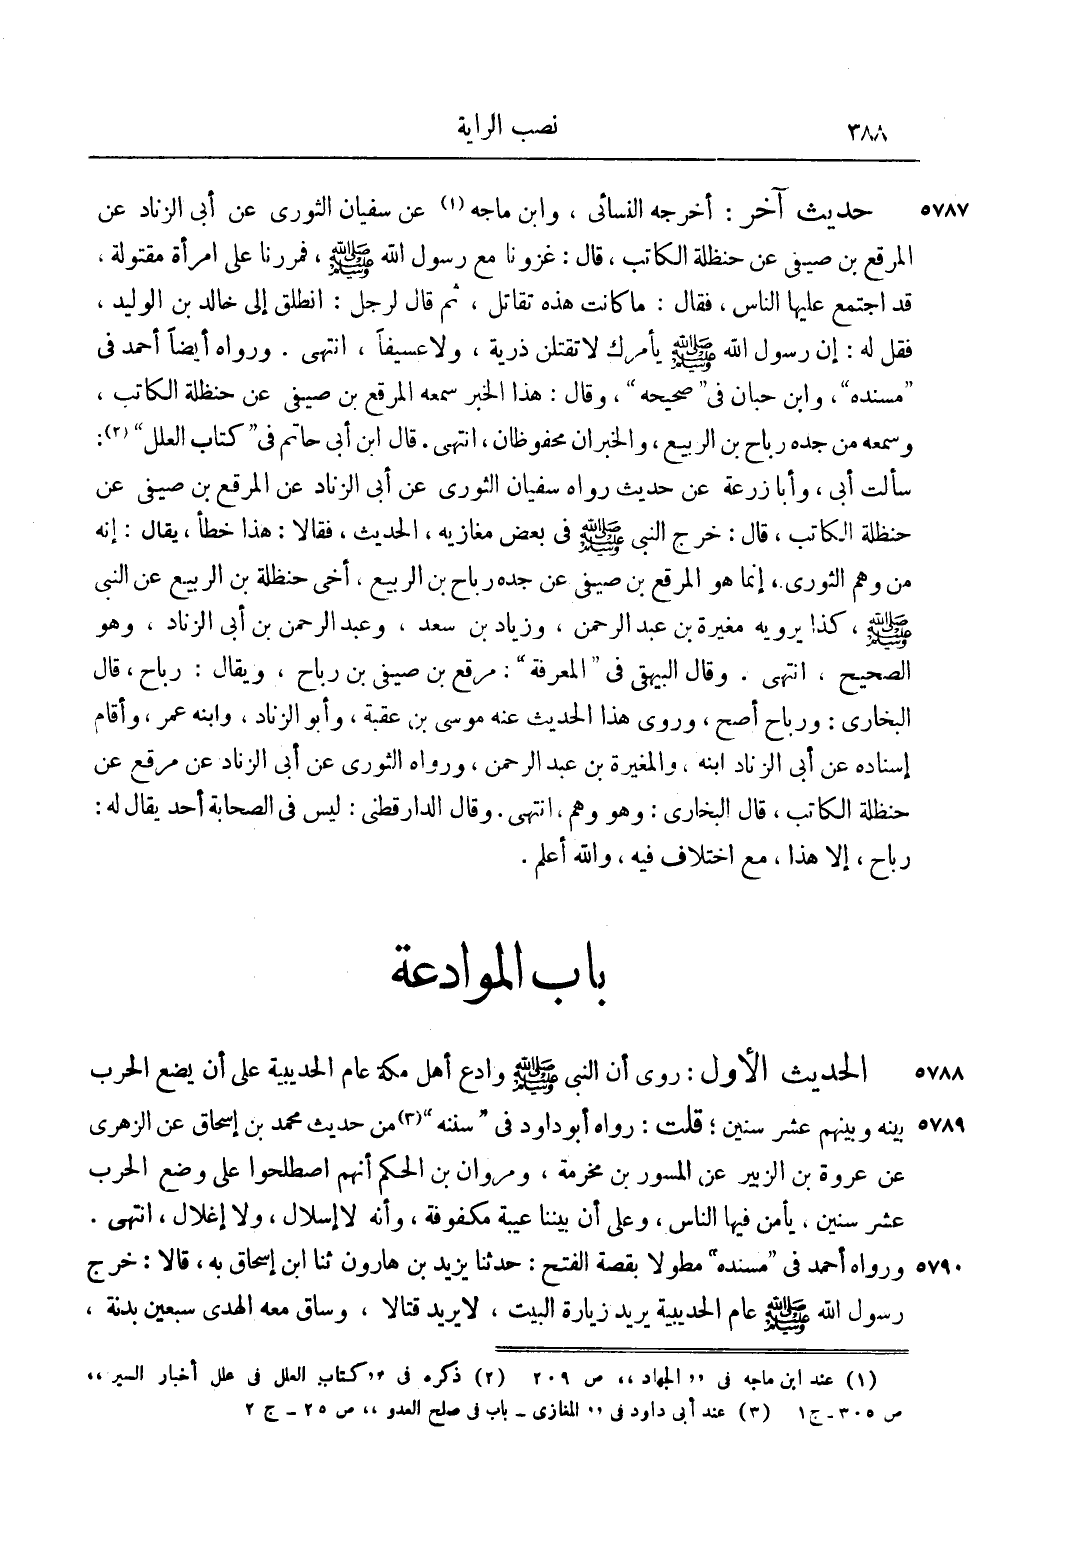 ٣٨٨ نصب الراية
٥٧٨٧ حديث آخر : أخرجه النسائى ، وابن ماجه (١) عن سفيان الثورى عن أبى الزناد عن
المرقع بن صيفى عن حنظلة الكاتب ، قال : غزونا مع رسول الله ﷺ ، فمررنا على امرأة مقتولة ،
قد اجتمع عليها الناس ، فقال : ماكانت هذه تقاتل ، ثم قال لرجل : انطلق إلى خالد بن الوليد ،
فقل له : إن رسول الله ﷺ يأمرك لاتقتلن ذرية ، ولاعسيفاً ، انتهى . ورواه أيضاً أحمد فى
”مسنده“ ، وابن حبان فى ”صحيحه“ ، وقال : هذا الخبر سمعه المرقع بن صيفى عن حنظلة الكاتب ،
وسمعه من جده رباح بن الربيع ، والخبران محفوظان ، انتهى . قال ابن أبى حاتم فى ”كتاب العلل“ (٢) :
سألت أبى ، وأبا زرعة عن حديث رواه سفيان الثورى عن أبى الزناد عن المرقع بن صيفى عن
حنظلة الكاتب ، قال : خرج النبى ﷺ فى بعض مغازيه ، الحديث ، فقالا : هذا خطأ ، يقال : إنه
من وهم الثورى ، إنما هو المرقع بن صيفى عن جده رباح بن الربيع ، أخى حنظلة بن الربيع عن النبى
ﷺ ، كذا يرويه مغيرة بن عبد الرحمن ، وزياد بن سعد ، وعبد الرحمن بن أبى الزناد ، وهو
الصحيح ، انتهى . وقال البيهقى فى ”المعرفة“ : مرقع بن صيفى بن رباح ، ويقال : رباح ، قال
البخارى : ورباح أصح ، وروى هذا الحديث عنه موسى بن عقبة ، وأبو الزناد ، وابنه عمر ، وأقام
إسناده عن أبى الزناد ابنه ، والمغيرة بن عبد الرحمن ، ورواه الثورى عن أبى الزناد عن مرقع عن
حنظلة الكاتب ، قال البخارى : وهو وهم ، انتهى . وقال الدارقطنى : ليس فى الصحابة أحد يقال له :
رباح ، إلا هذا ، مع اختلاف فيه ، والله أعلم .
باب الموادعة
٥٧٨٨ الحديث الأول : روى أن النبى ﷺ وادع أهل مكة عام الحديبية على أن يضع الحرب
٥٧٨٩ بينه وبينهم عشر سنين ؛ قلت : رواه أبو داود فى ”سننه“ (٣) من حديث محمد بن إسحاق عن الزهرى
عن عروة بن الزبير عن المسور بن مخرمة ، ومروان بن الحكم أنهم اصطلحوا على وضع الحرب
عشر سنين ، يأمن فيها الناس ، وعلى أن بيننا عيبة مكفوفة ، وأنه لا إسلال ، ولا إغلال ، انتهى .
٥٧٩٠ ورواه أحمد فى ”مسنده“ مطولا بقصة الفتح : حدثنا يزيد بن هارون ثنا ابن إسحاق به ، قالا : خرج
رسول الله ﷺ عام الحديبية يريد زيارة البيت ، لايريد قتالا ، وساق معه الهدى سبعين بدنة ،
(١) عند ابن ماجه فى ,, الجهاد ،، ص ٢٠٩ (٢) ذكره فى ,, كتاب العلل فى علل أخبار السير ،،
ص ٣٠٥ ـ ج ١ (٣) عند أبى داود فى ,, المغازى ـ باب فى صلح العدو ،، ص ٢٥ ـ ج ٢